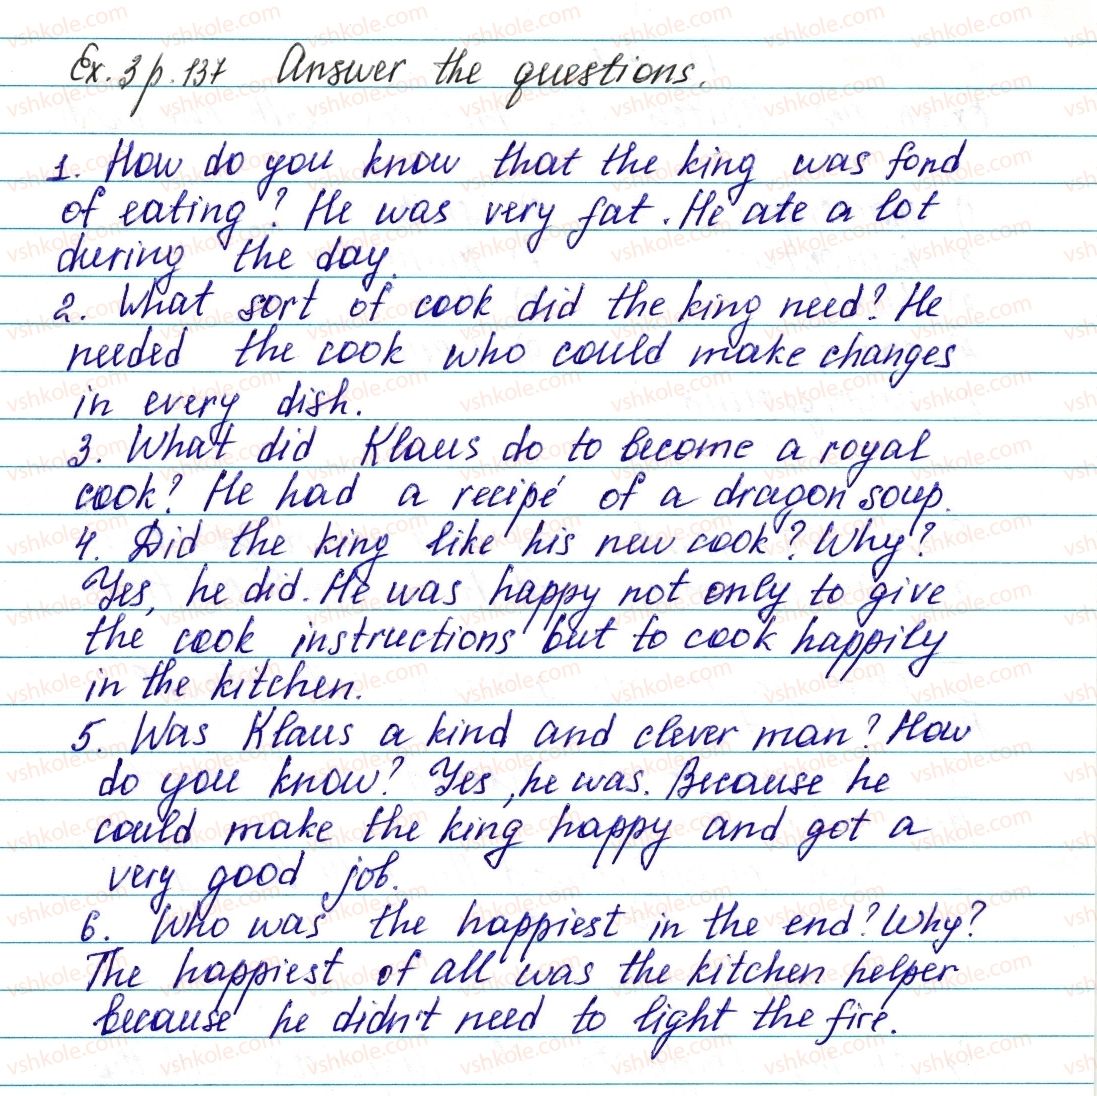 Ex. 3 p. 137 Answer the questions.
1. How do you know that the king was fond
of eating? He was very fat. He ate a lot
during the day.
2. What sort of cook did the king need? He
needed the cook who could make changes
in every dish.
3. What did Klaus do to become a royal
cook? He had a recipé of a dragon soup.
4. Did the king like his new cook? Why?
Yes, he did. He was happy not only to give
the cook instructions but to cook happily
in the kitchen.
5. Was Klaus a kind and clever man? How
do you know? Yes, he was. Because he
could make the king happy and got a
very good job.
6. Who was the happiest in the end? Why?
The happiest of all was the kitchen helper
because he didn't need to light the fire.
vshkole.com